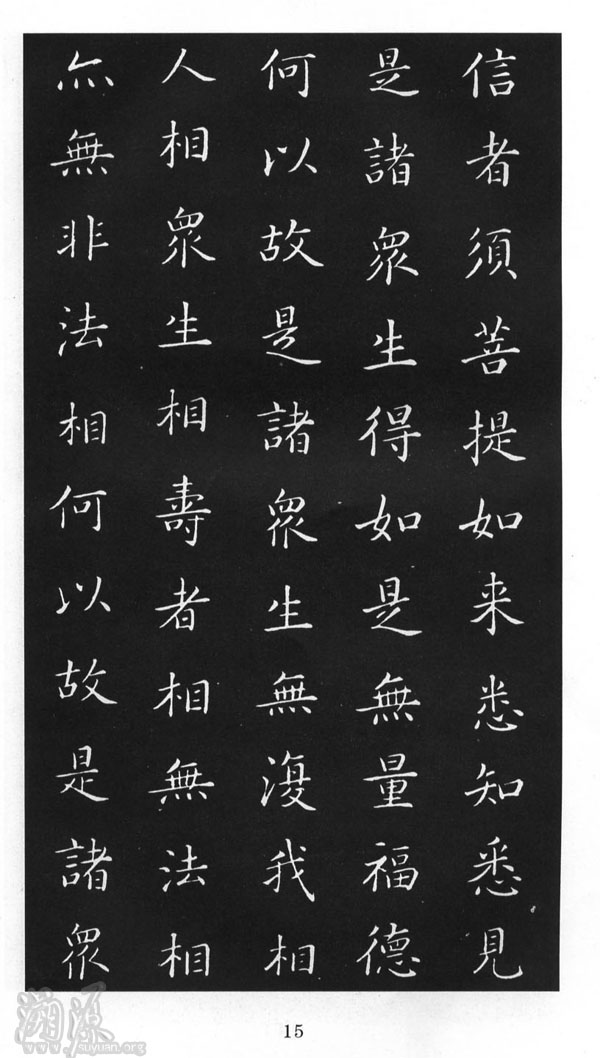 信者須菩提如来悉知悉見
是諸眾生得如是無量福德
何以故是諸眾生無復我相
人相眾生相壽者相無法相
亦無非法相何以故是諸眾
15
溯源
suyuan.org